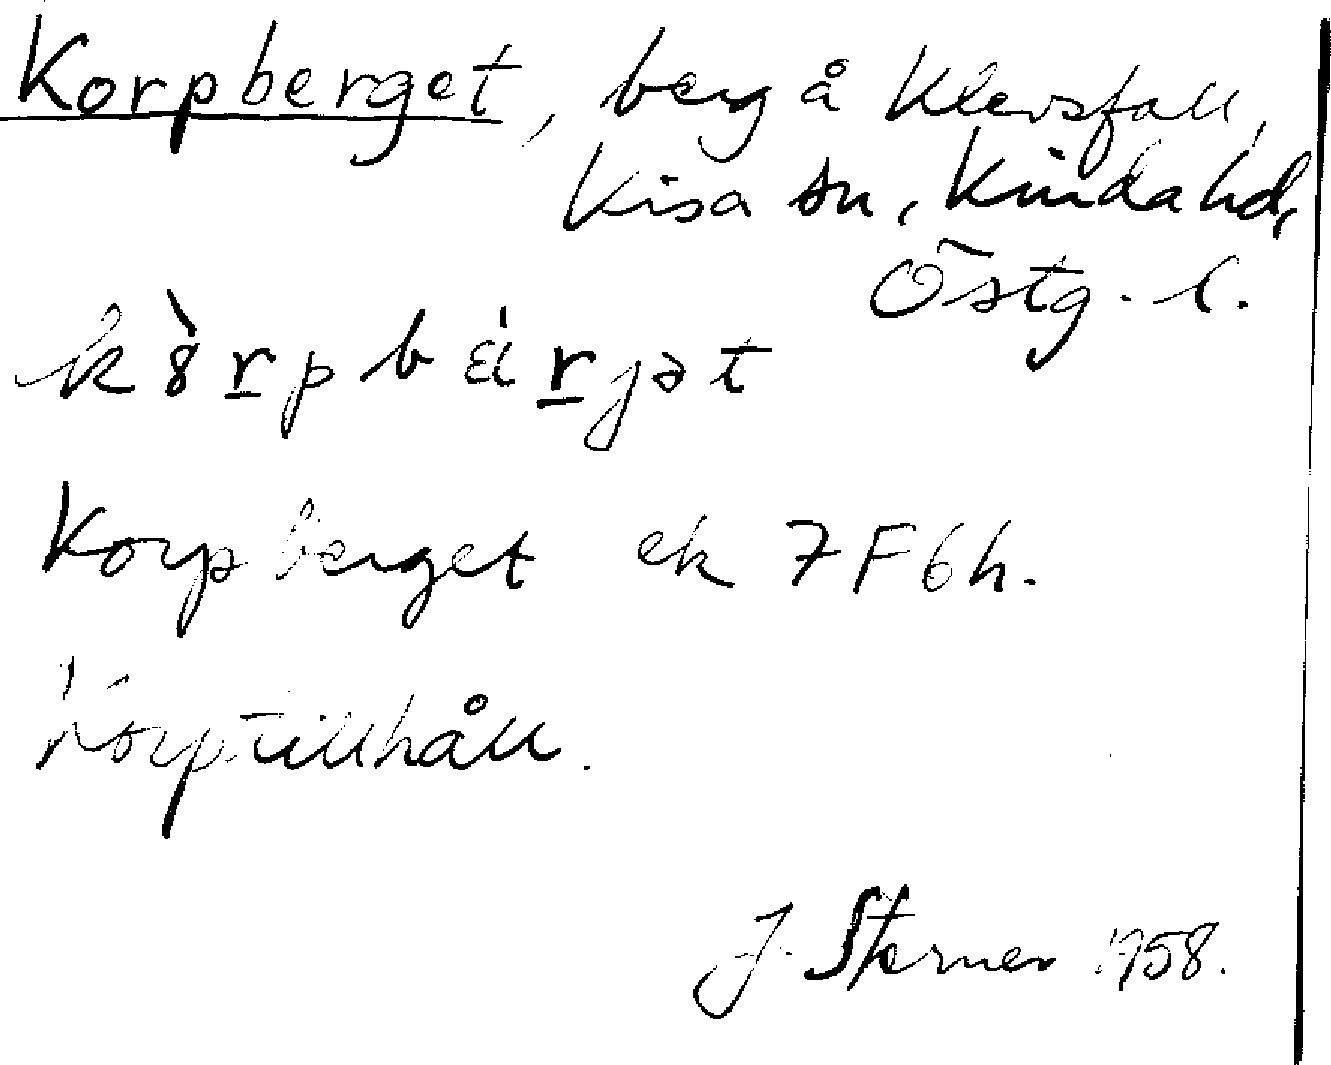 Korpberget, berg å Klevsfall,
Kisa sn, Kinda hd,
Östg. l.
k8̀rpbɛ́rjət
Korpberget ek 7F6h.
Korptillhåll.
J. Sterner 1958.